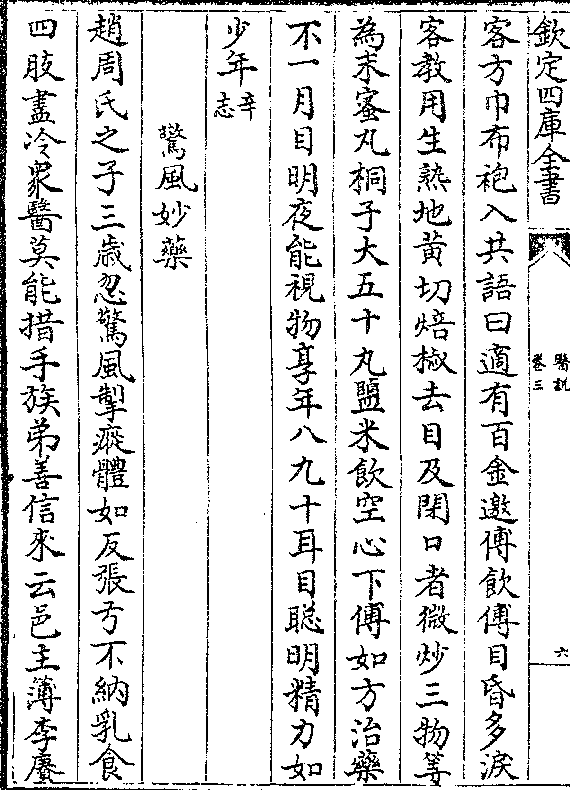 欽定四庫全書
醫說
卷三
六
客方巾布袍入共語曰適有百金邀傅飲傅目昏多淚
客教用生熟地黄切焙椒去目及閉口者微炒三物等
為末蜜丸桐子大五十丸鹽米飲空心下傅如方治藥
不一月目明夜能視物享年八九十耳目聰明精力如
少年辛志
驚風妙藥
趙周氏之子三歳忽驚風掣瘲體如反張弓不納乳食
四肢盡冷衆醫莫能措手族弟善信來云邑主薄李賡